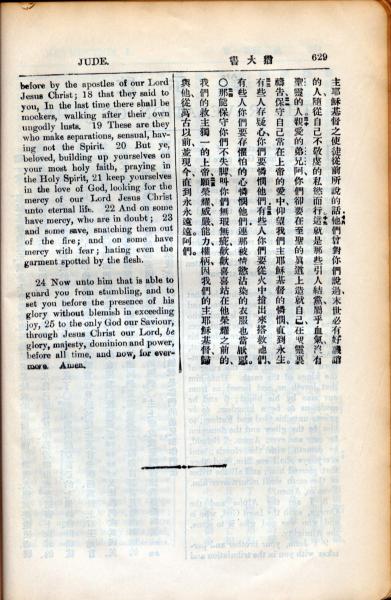 JUDE.
書大猶
629
before by the apostles of our Lord
Jesus Christ; 18 that they said to
you, In the last time there shall be
mockers, walking after their own
ungodly lusts. 19 These are they
who make separations, sensual, hav-
ing not the Spirit. 20 But ye,
beloved, building up yourselves on
your most holy faith, praying in
the Holy Spirit, 21 keep yourselves
in the love of God, looking for the
mercy of our Lord Jesus Christ
unto eternal life. 22 And on some
have mercy, who are in doubt; 23
and some save, snatching them out
of the fire; and on some have
mercy with fear; hating even the
garment spotted by the flesh.
24 Now unto him that is able to
guard you from stumbling, and to
set you before the presence of his
glory without blemish in exceeding
joy, 25 to the only God our Saviour,
through Jesus Christ our Lord, be
glory, majesty, dominion and power,
before all time, and now, for ever-
more. Amen.
主耶穌基督之使徒從前所說的話。他們曾對你們說過末世必有好譏誚
的人、隨從自己不敬虔的私慾而行。這就是那些引人結黨、屬乎血氣、沒有
聖靈的人。親愛的弟兄阿、你們卻要在至聖的眞道上造就自己、在聖靈裏
禱告、保守自己常在上帝的愛中、仰望我們主耶穌基督的憐憫、直到永生。
有些人存疑心、你們要憐憫他們。有些人你們要從火中搶出來搭救他們。
有些人你們要存懼怕的心憐憫他們、連那被情慾沾染的衣服也當厭惡。
〇那能保守你們不失脚、叫你們無瑕無疵、歡歡喜喜站在他榮耀之前的、
我們的救主獨一的上帝、願榮耀威嚴能力權柄、因我們的主耶穌基督歸
與他、從萬古以前、並現今、直到永永遠遠。阿們。